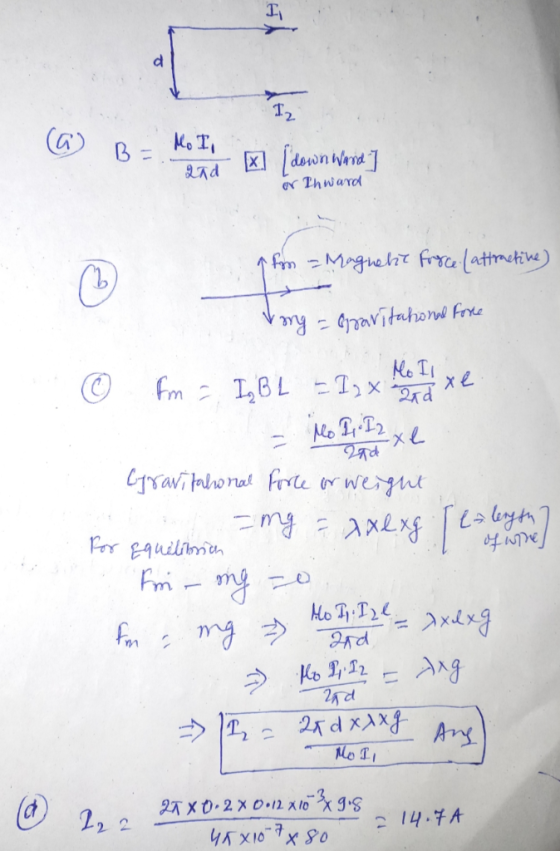 I₁
d
I₂
(a) B = μ₀ I₁ / 2πd [×] [downward]
or Inward
(b) Fm = Magnetic Force (attractive)
mg = Gravitational Force
(c) Fm = I₂BL = I₂ × μ₀ I₁ / 2πd × l
= μ₀ I₁·I₂ / 2πd × l
Gravitational Force or weight
= mg = λ×l×g [l → length of wire]
For Equilibrium
Fm − mg = 0
Fm = mg ⇒ μ₀ I₁·I₂ l / 2πd = λ×l×g
⇒ μ₀ I₁·I₂ / 2πd = λ×g
⇒ I₂ = 2πd×λ×g / μ₀ I₁ Ans
(d) I₂ = 2π×0.2×0.12×10⁻³×9.8 / 4π×10⁻⁷×80 = 14.7A